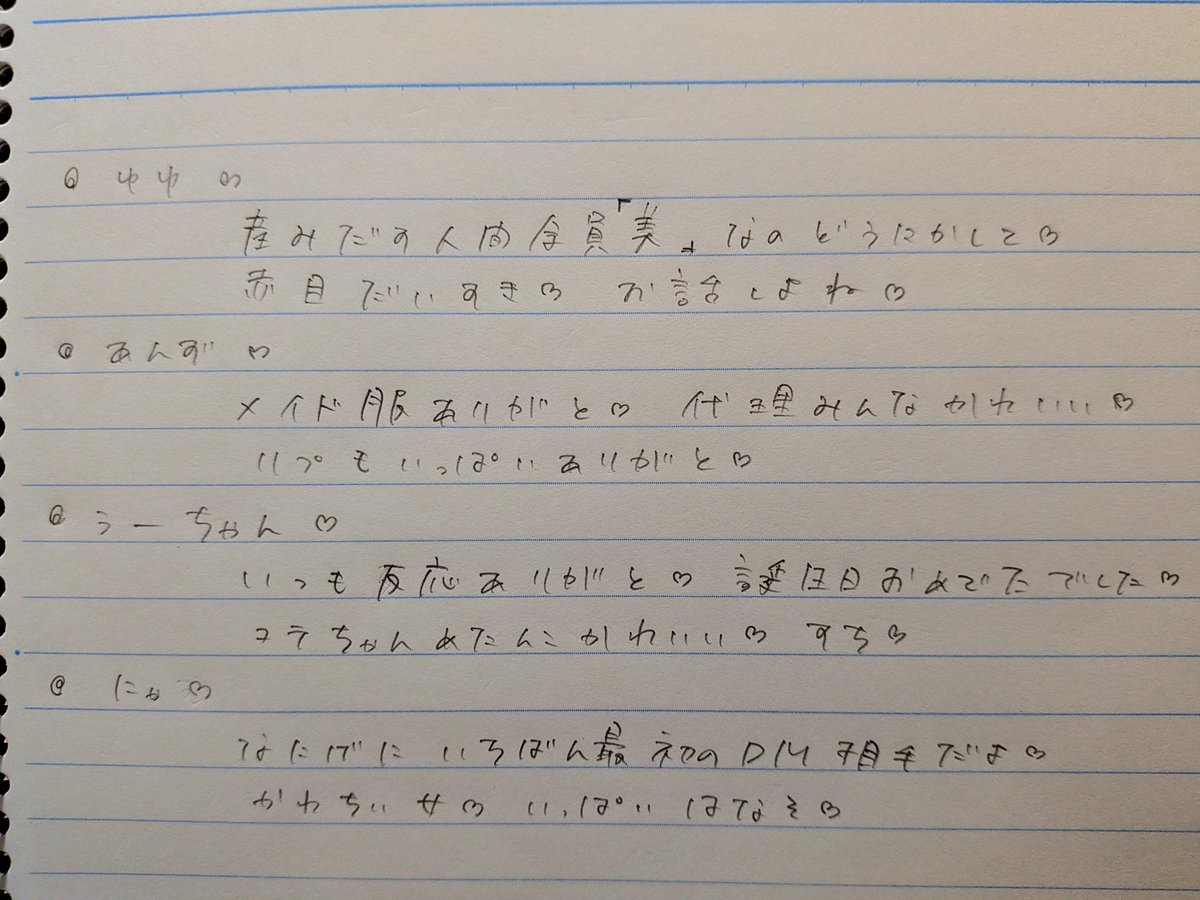 @ ゆゆ ♡
産みだす人間全員「美」なのどうにかして♡
赤目だいすき♡ お話しよね♡
@ あんず ♡
メイド服ありがと♡ 代理みんなかわいい♡
いつもいっぱいありがと♡
@ うーちゃん ♡
いつも反応ありがと♡ 誕生日おめでたでした♡
コテちゃんめたんこかわいい♡ すち♡
@ にゃ ♡
なにげにいちばん最初のDM相手だよ♡
かわちいせ♡ いっぱいはなそ♡